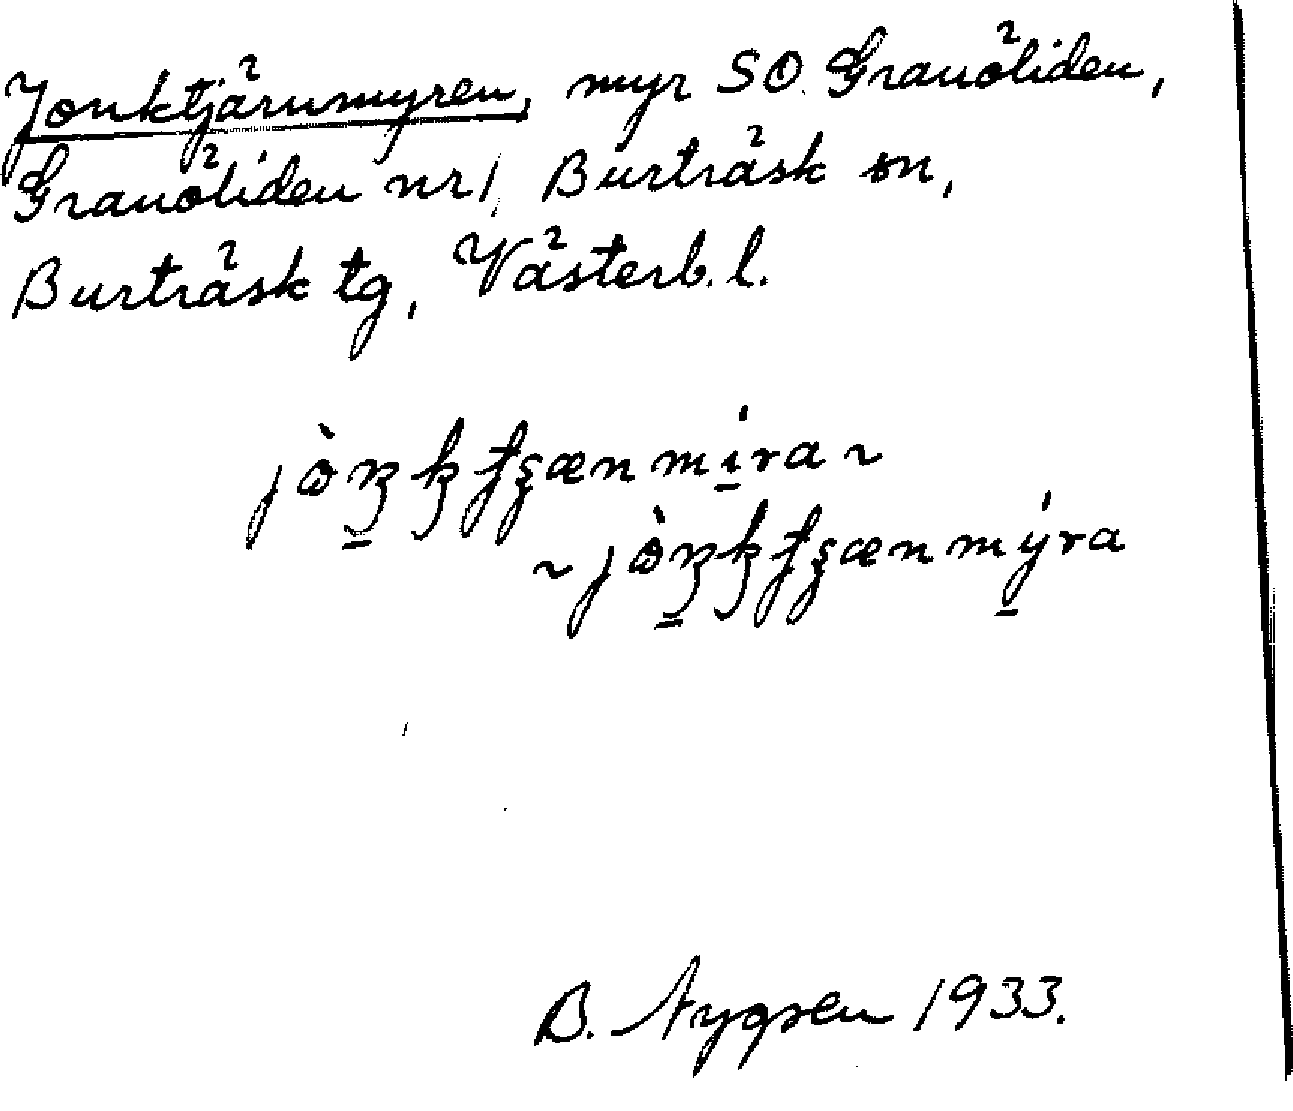 Jonktjärnmyren, myr SO. Granöliden,
Granöliden nr 1, Burträsk sn,
Burträsk tg, Västerb. l.
B. 1933.